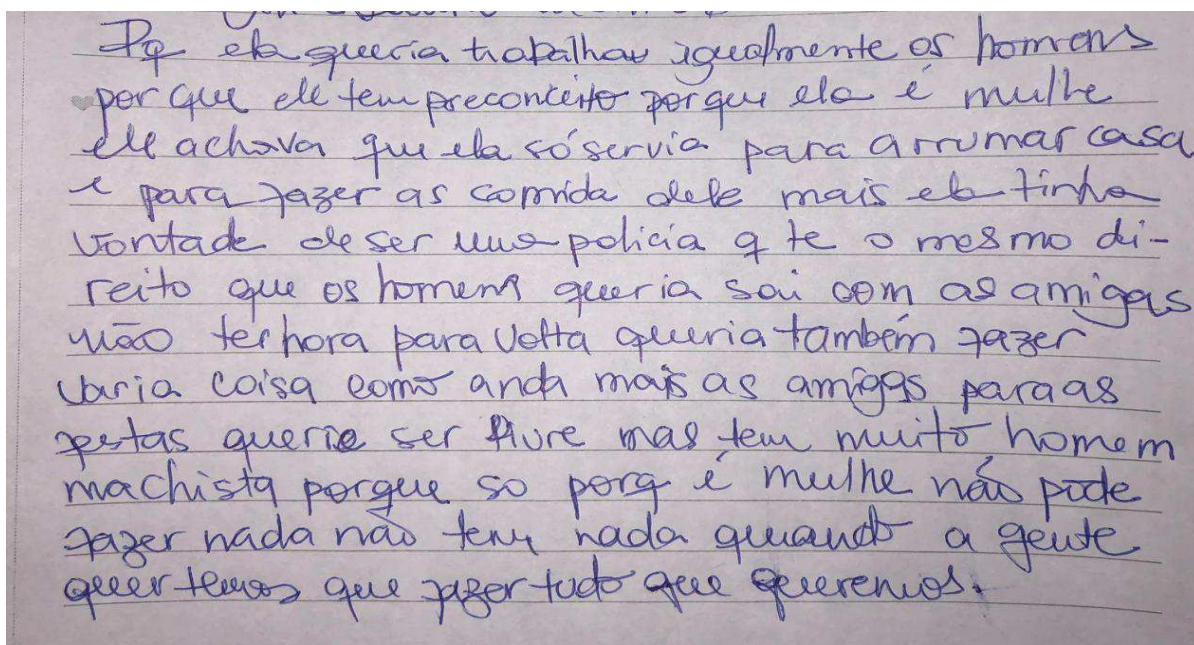 Pq ela queria trabalhar igualmente os homens
por que ele tem preconceito porque ela é mulhe
ele achava que ela só servia para arrumar casa
e para fazer as comida dele mais ela tinha
vontade de ser uma policia q te o mesmo di-
reito que os homens queria sai com as amigas
não ter hora para volta queria também fazer
varia coisa como anda mais as amigas para as
festas queria ser livre mas tem muito homem
machista porque so porq é mulhe não pode
fazer nada não tem nada quando a gente
quer temos que fazer tudo que queremos.